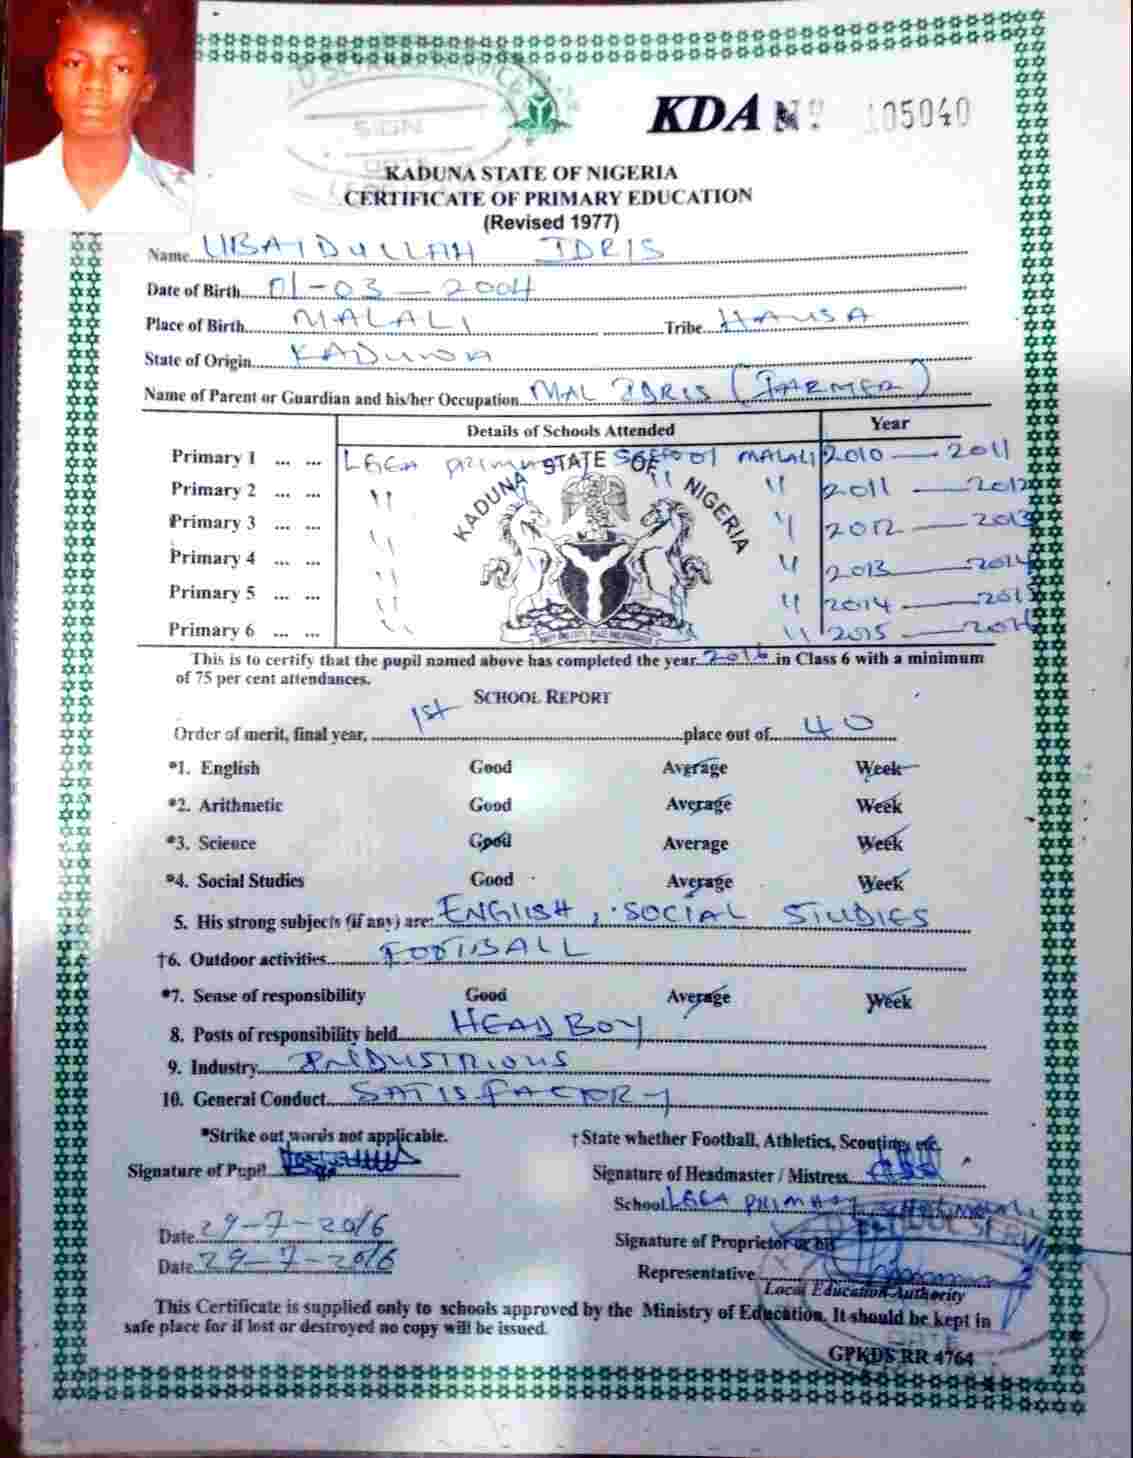 SIGN
DATE
KDA Nº 105040
KADUNA STATE OF NIGERIA
CERTIFICATE OF PRIMARY EDUCATION
(Revised 1977)
Name UBAIDULLAH IDRIS
Date of Birth 01-03-2004
Place of Birth MALALI Tribe HAUSA
State of Origin KADUNA
Name of Parent or Guardian and his/her Occupation MAL IDRIS (FARMER)
Details of Schools Attended Year
Primary 1 ... ... LGEA primary School MALALI 2010 — 2011
Primary 2 ... ... " " " 2011 — 2012
Primary 3 ... ... " " 2012 — 2013
Primary 4 ... ... " " 2013 — 2014
Primary 5 ... ... " " 2014 — 201
Primary 6 ... ... " " 2015 — 2016
KADUNA STATE OF NIGERIA
This is to certify that the pupil named above has completed the year 2016 in Class 6 with a minimum
of 75 per cent attendances.
SCHOOL REPORT
Order of merit, final year, 1st place out of 40
*1. English Good Average Week
*2. Arithmetic Good Average Week
*3. Science Good Average Week
*4. Social Studies Good Average Week
5. His strong subjects (if any) are: ENGLISH, SOCIAL STUDIES
†6. Outdoor activities FOOTBALL
*7. Sense of responsibility Good Average Week
8. Posts of responsibility held HEAD BOY
9. Industry INDUSTRIOUS
10. General Conduct SATISFACTORY
*Strike out words not applicable. †State whether Football, Athletics, Scouting, etc.
Signature of Pupil Signature of Headmaster / Mistress
School LGEA PRIMARY SCHOOL MALALI
Date 29-7-2016 Signature of Proprietor or his
Date 29-7-2016 Representative
Local Education Authority
This Certificate is supplied only to schools approved by the Ministry of Education. It should be kept in
safe place for if lost or destroyed no copy will be issued.
DATE
GPKDS RR 4764